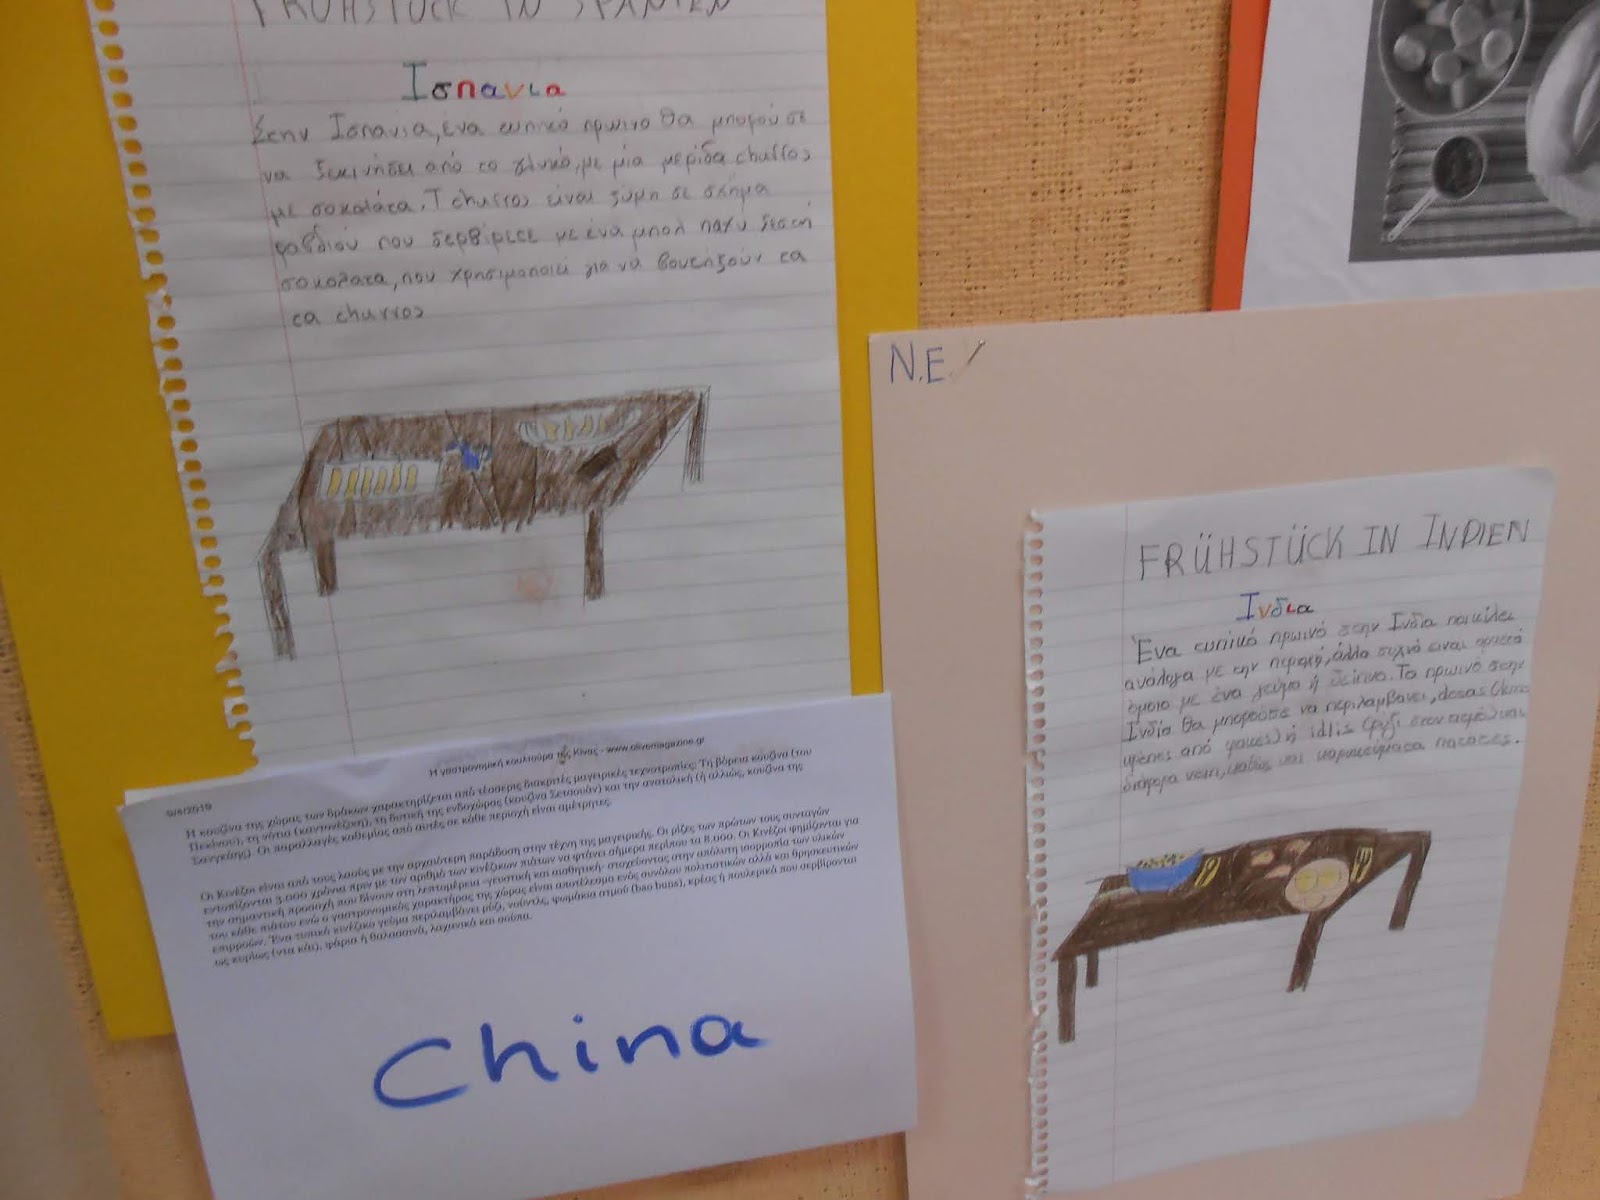 FRÜHSTÜCK IN SPANIEN
Ισπανια
Στην Ισπανια, ένα τυπικό πρωινό θα μπορούσε
να ξεκινήσει από το γλυκό, με μια μερίδα churros
με σοκολάτα. Τ churros είναι ζύμη σε σχήμα
ραβδιού που σερβίρετε με ένα μπολ παχυ ζεστή
σοκολατα, που χρησιμοποιεί για να βουτήξουν τα
τα churros
N.E.
FRÜHSTÜCK IN INDIEN
Ινδια
Ένα τυπικό πρωινό στην Ινδία ποικίλει
ανάλογα με την περιοχή, άλλα συχνά ειναι αρκετά
όμοιο με ένα γεύμα ή δείπνο. Το πρωινό στην
Ινδία θα μπορούσε να περιλαμβανει, dosas
από φακες) ή idlis (ρυζι στον ατμό) και
διάφορα καθώς και καρυκεύματα πατατες.
9/6/2019
Η γαστρονομική κουλτούρα της Κίνας - www.olivemagazine.gr
Η κουζίνα της χώρας των δράκων χαρακτηρίζεται από τέσσερις διακριτές μαγειρικές τεχνοτροπίες: Τη βόρεια κουζίνα (του
Πεκίνου), τη νότια (καντονέζικη), τη δυτική της ενδοχώρας (κουζίνα Σετσουάν) και την ανατολική (ή αλλιώς, κουζίνα της
Σανγκάης). Οι παραλλαγές καθεμίας από αυτές σε κάθε περιοχή είναι αμέτρητες.
Οι Κινέζοι είναι από τους λαούς με την αρχαιότερη παράδοση στην τέχνη της μαγειρικής. Οι ρίζες των πρώτων τους συνταγών
εντοπίζονται 3.000 χρόνια πριν με τον αριθμό των κινέζικων πιάτων να φτάνει σήμερα περίπου τα 8.000. Οι Κινέζοι φημίζονται για
την σημαντική προσοχή που δίνουν στη λεπτομέρεια -γευστική και αισθητική- στοχεύοντας στην απόλυτη ισορροπία των υλικών
του κάθε πιάτου ενώ ο γαστρονομικός χαρακτήρας της χώρας είναι αποτέλεσμα ενός συνόλου πολιτιστικών αλλά και θρησκευτικών
επιρροών. Ένα τυπικό κινέζικο γεύμα περιλαμβάνει ρύζι, νούντλς, ψωμάκια ατμού (bao buns), κρέας ή πουλερικά που σερβίρονται
ως κυρίως (ντα κάι), ψάρια ή θαλασσινά, λαχανικά και σούπα.
China